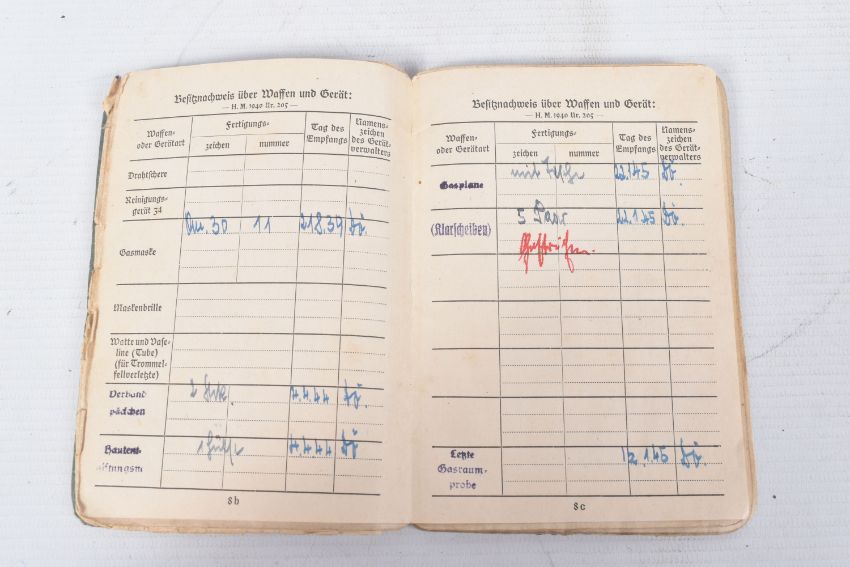 Besitznachweis über Waffen und Gerät:
— H. M. 1940 Nr. 205 —
Waffen-
oder Gerätart
Fertigungs-
zeichen
nummer
Tag des
Empfangs
Namens-
zeichen
des Gerät-
verwalters
Drahtschere
Reinigungs-
gerät 34
Gasmaske
30 11 21.8.39 Dö.
Maskenbrille
Watte und Vase-
line (Tube)
(für Trommel-
fellverletzte)
Verband
päckchen
2 Stck. 4.4.44 Dö.
Hautent-
giftungsm
4.4.44 Dö
8b
Besitznachweis über Waffen und Gerät:
— H. M. 1940 Nr. 205 —
Waffen-
oder Gerätart
Fertigungs-
zeichen
nummer
Tag des
Empfangs
Namens-
zeichen
des Gerät-
verwalters
Gasplane
mit 22.1.45 Dö.
(Klarscheiben)
5 Paar 22.1.45 Dö.
Letzte
Gasraum-
probe
12.1.45 Dö.
8c